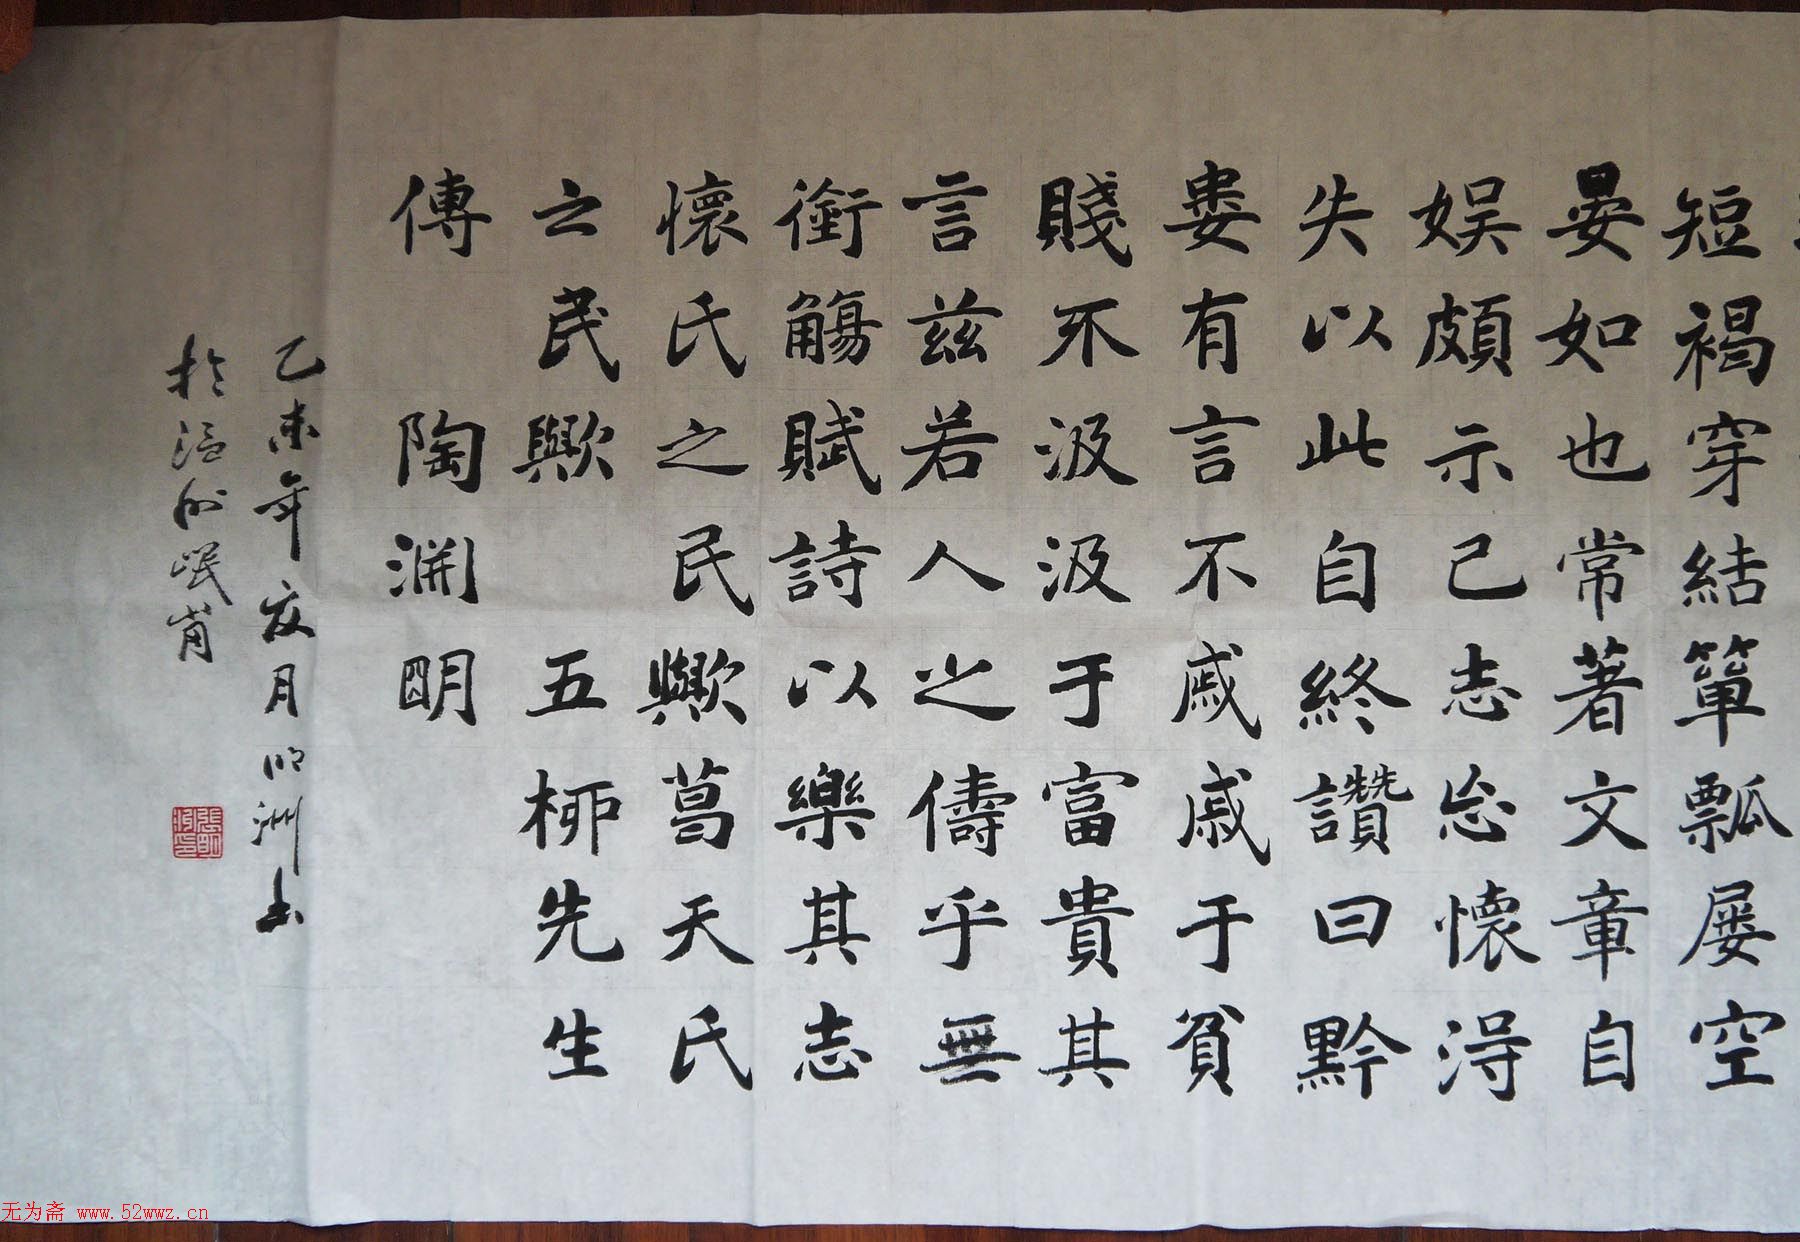 短褐穿結簞瓢屡空
晏如也常著文章自
娱頗示己志忘懷得
失以此自終讚曰黔
婁有言不戚戚于貧
賤不汲汲于富貴其
言兹若人之儔乎無
銜觴賦詩以樂其志
懷氏之民歟葛天氏
之民歟 五柳先生
傳 陶淵明
乙未年夜月明洲书
於温州
无为斋 www.52wwz.cn